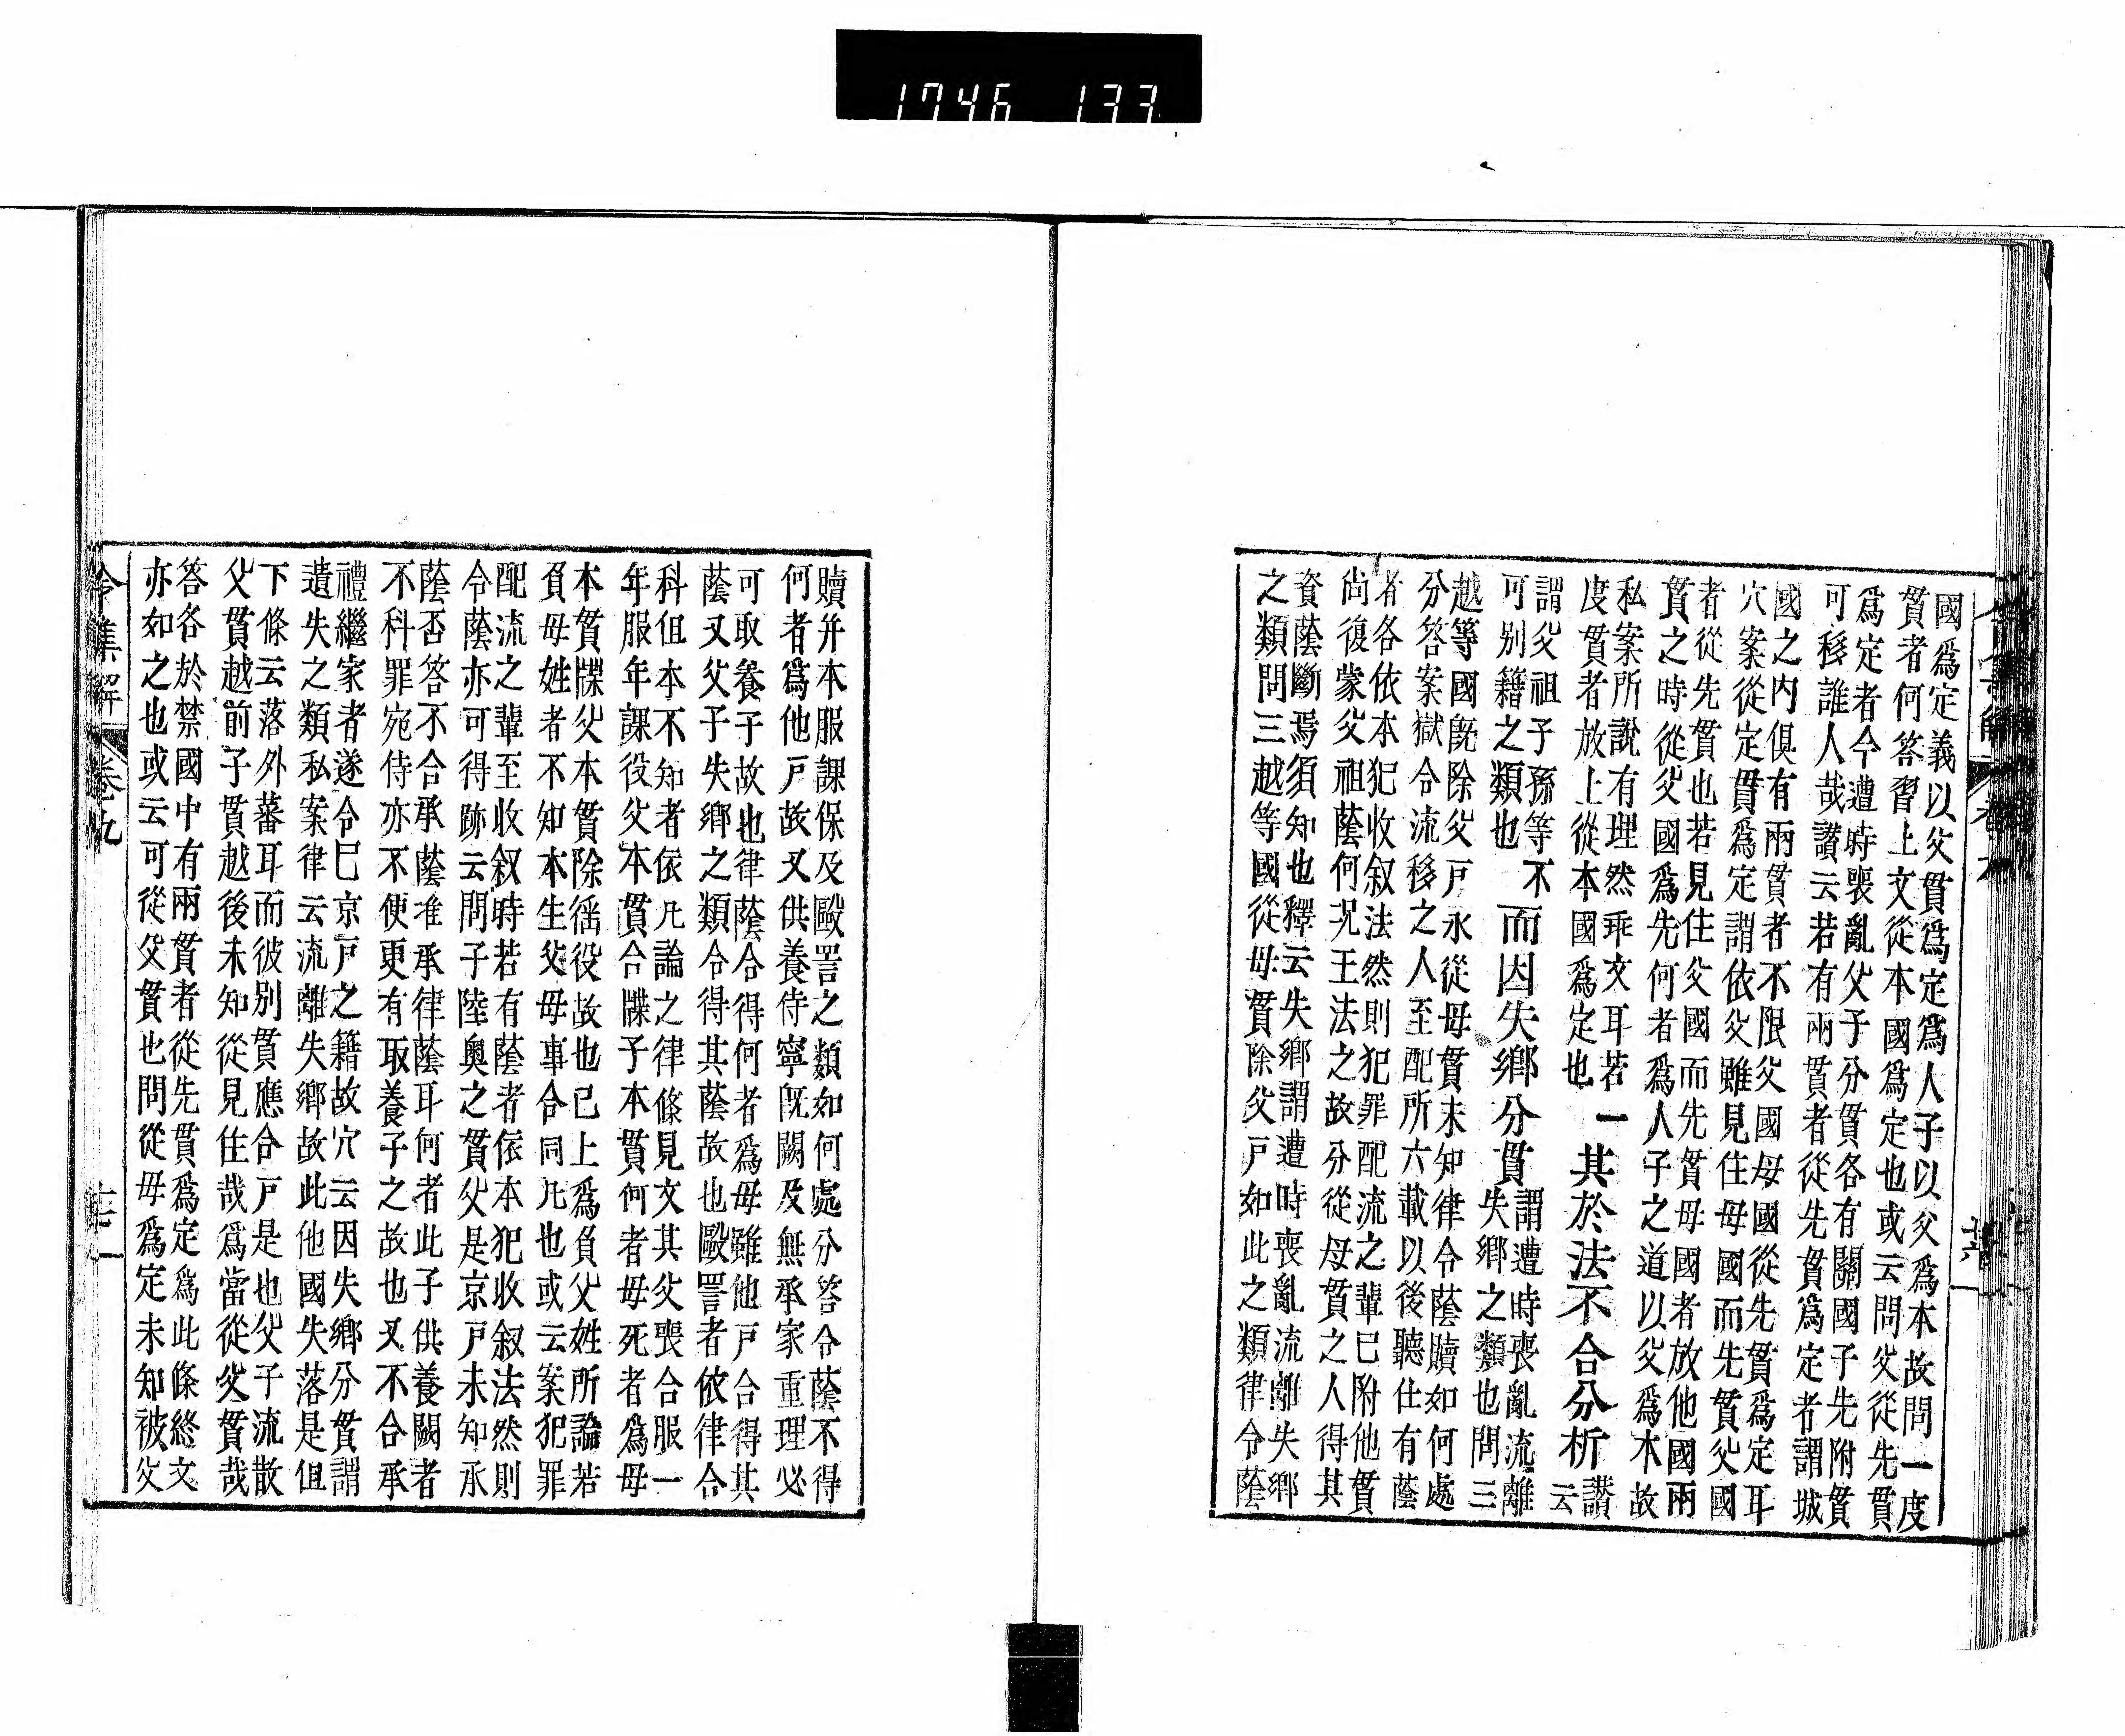 1746 133
國爲定義以父貫爲定爲人子以父爲本故問一度
貫者何答習上文從本國爲定也或云問父從先貫
爲定者今遭時喪亂父子分貫各有關國子先附貫
可移誰人哉讃云若有兩貫者從先貫爲定者謂城
國之内俱有兩貫者不限父國母國從先貫爲定耳
穴案從定貫爲定謂依父雖見住母國而先貫父國
者從先貫也若見住父國而先貫母國者放他國兩
貫之時從父國爲先何者爲人子之道以父爲本故
私案所説有理然乖文耳若一
度貫者放上從本國爲定也
其於法不合分析
讃
云
謂父祖子孫等不
可别籍之類也
而因失鄉分貫
謂遭時喪亂流離
失鄉之類也問三
越等國既除父戸永從母貫未知律令蔭贖如何處
分答案獄令流移之人至配所六載以後聽仕有蔭
者各依本犯收叙法然則犯罪配流之輩巳附他貫
尚復蒙父祖蔭何况王法之故分從母貫之人得其
資蔭斷焉須知也釋云失鄉謂遭時喪亂流離失鄉
之類問三越等國從母貫除父戸如此之類律令蔭
贖并本服課保及毆詈之類如何處分答令蔭不得
何者爲他戸故又供養侍寧既闕及無承家重理必
可取養子故也律蔭合得何者爲母雖他戸合得其
蔭又父子失鄉之類令得其蔭故也毆詈者依律合
科但本不知者依凡論之律條見文其父喪合服一
年服年課役父本貫合牒子本貫何者母死者爲母
本貫牒父本貫除徭役故也已上爲負父姓所論若
負母姓者不知本生父母事合同凡也或云案犯罪
配流之輩至收叙時若有蔭者依本犯收叙法然則
令蔭亦可得跡云問子陸奧之貫父是京戸未知承
蔭否答不合承蔭准承律蔭耳何者此子供養闕者
不科罪宛侍亦不便更有取養子之故也又不合承
禮繼家者遂令巳京戸之籍故穴云因失鄉分貫謂
遺失之類私案律云流離失鄉故此他國失落是但
下條云落外蕃耳而彼别貫應合戸是也父子流散
父貫越前子貫越後未知從見住哉爲當從父貫哉
答各於禁國中有兩貫者從先貫爲定爲此條終文
亦如之也或云可從父貫也問從母爲定未知被父
令集解 卷九